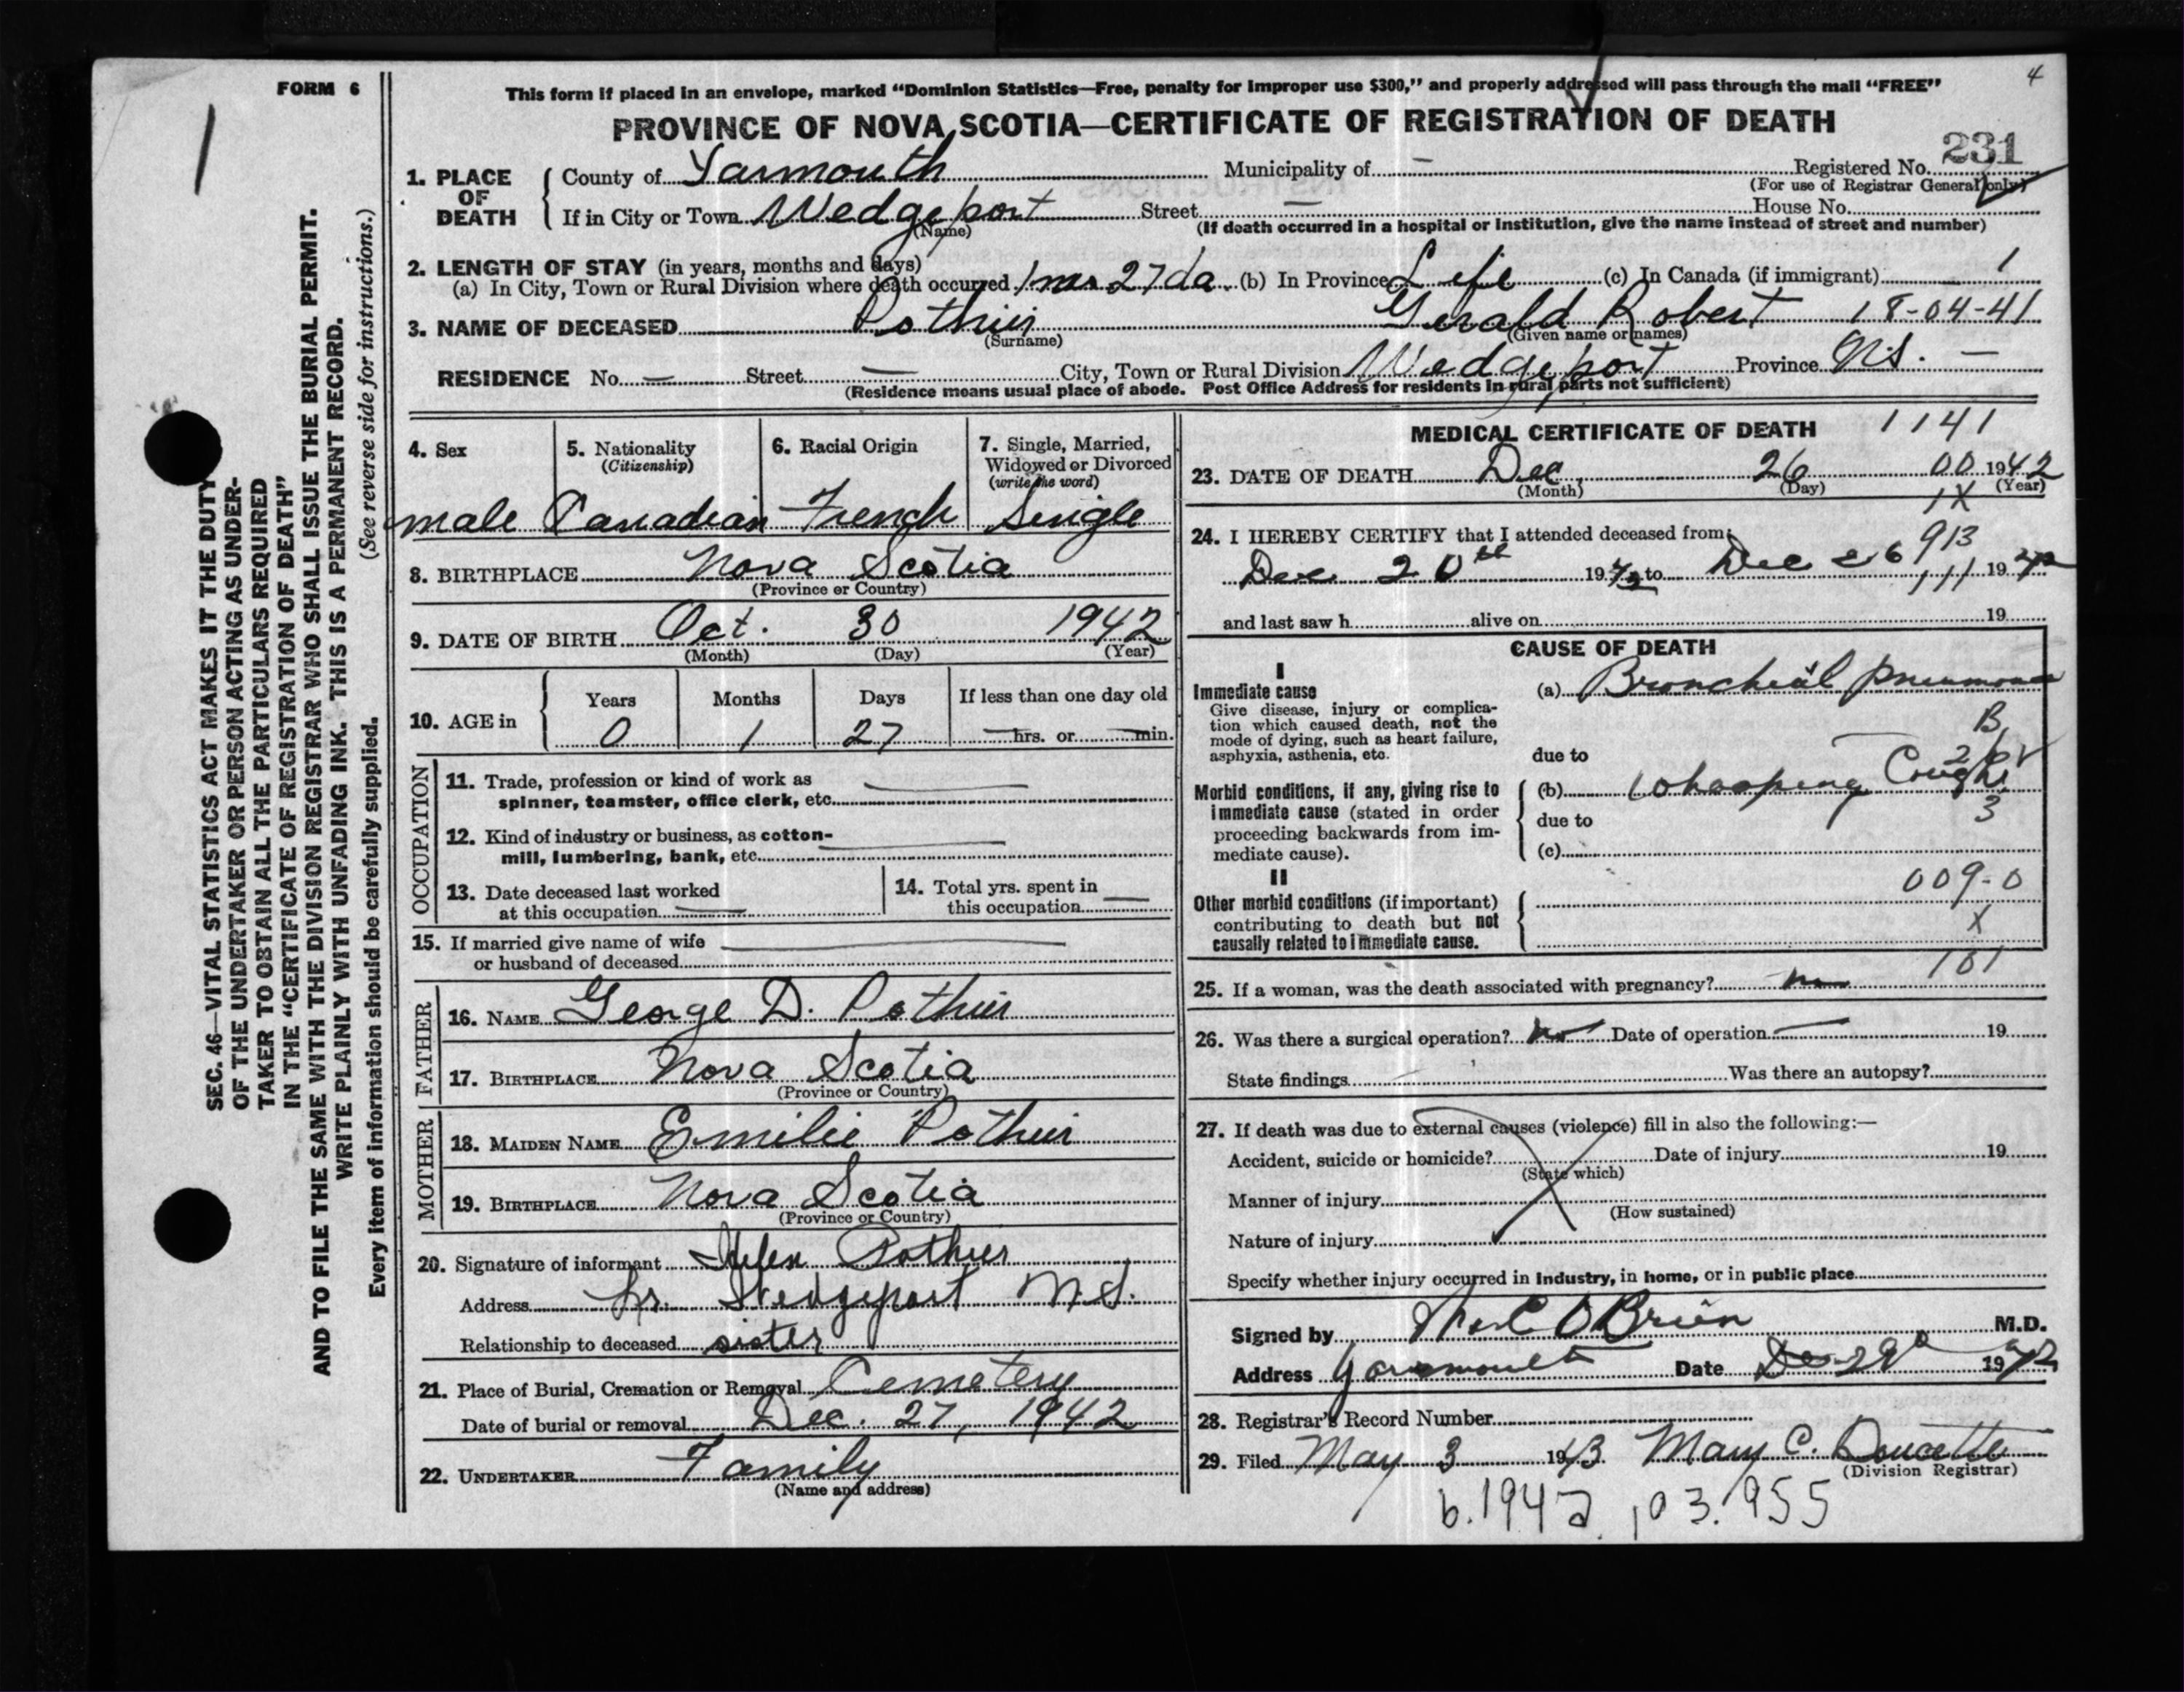 FORM 6
1
4
This form if placed in an envelope, marked “Dominion Statistics—Free, penalty for improper use $300,” and properly addressed will pass through the mail “FREE”
PROVINCE OF NOVA SCOTIA—CERTIFICATE OF REGISTRATION OF DEATH
231
1. PLACE OF DEATH
County of Yarmouth Municipality of — Registered No.
(For use of Registrar General only)
If in City or Town Wedgeport Street — House No.
(Name) (If death occurred in a hospital or institution, give the name instead of street and number)
2. LENGTH OF STAY (in years, months and days)
(a) In City, Town or Rural Division where death occurred 1 mo 27 da (b) In Province Life (c) In Canada (if immigrant) 1
3. NAME OF DECEASED Pothier Gerald Robert 18-04-41
(Surname) (Given name or names)
RESIDENCE No. — Street — City, Town or Rural Division Wedgeport Province N.S. —
(Residence means usual place of abode. Post Office Address for residents in rural parts not sufficient)
4. Sex
male
5. Nationality
(Citizenship)
Canadian
6. Racial Origin
French
7. Single, Married,
Widowed or Divorced
(write the word)
Single
8. BIRTHPLACE Nova Scotia
(Province or Country)
9. DATE OF BIRTH Oct. 30 1942
(Month) (Day) (Year)
10. AGE in
Years Months Days If less than one day old
0 1 27 — hrs. or — min.
OCCUPATION
11. Trade, profession or kind of work as
spinner, teamster, office clerk, etc.
12. Kind of industry or business, as cotton-
mill, lumbering, bank, etc.
13. Date deceased last worked
at this occupation —
14. Total yrs. spent in
this occupation —
15. If married give name of wife
or husband of deceased
FATHER
16. NAME George D. Pothier
17. BIRTHPLACE Nova Scotia
(Province or Country)
MOTHER
18. MAIDEN NAME Emilie Pothier
19. BIRTHPLACE Nova Scotia
(Province or Country)
20. Signature of informant Helen Pothier
Address Lr. Wedgeport N.S.
Relationship to deceased sister
21. Place of Burial, Cremation or Removal Cemetery
Date of burial or removal Dec. 27, 1942
22. UNDERTAKER Family
(Name and address)
MEDICAL CERTIFICATE OF DEATH 1141
23. DATE OF DEATH Dec 26 00 1942
(Month) (Day) (Year)
1X
24. I HEREBY CERTIFY that I attended deceased from:
913
Dec 20th 1942 to Dec 26 1942
111
and last saw h alive on 19
CAUSE OF DEATH
I
Immediate cause
Give disease, injury or complica-
tion which caused death, not the
mode of dying, such as heart failure,
asphyxia, asthenia, etc.
(a) Bronchial pneumonia
B
due to
Morbid conditions, if any, giving rise to
immediate cause (stated in order
proceeding backwards from im-
mediate cause).
(b) Whooping Cough
due to
3
(c)
II
Other morbid conditions (if important)
contributing to death but not
causally related to immediate cause.
009-0
X
101
25. If a woman, was the death associated with pregnancy? no
26. Was there a surgical operation? no Date of operation — 19
State findings Was there an autopsy?
27. If death was due to external causes (violence) fill in also the following:—
Accident, suicide or homicide? Date of injury 19
(State which)
Manner of injury
(How sustained)
Nature of injury
Specify whether injury occurred in industry, in home, or in public place
Signed by O'Brien M.D.
Address Yarmouth Date Dec 29 1942
28. Registrar's Record Number
29. Filed May 3 1943 Mary C. Doucette
(Division Registrar)
b.1942. 103.955
SEC. 46—VITAL STATISTICS ACT MAKES IT THE DUTY
OF THE UNDERTAKER OR PERSON ACTING AS UNDER-
TAKER TO OBTAIN ALL THE PARTICULARS REQUIRED
IN THE “CERTIFICATE OF REGISTRATION OF DEATH”
AND TO FILE THE SAME WITH THE DIVISION REGISTRAR WHO SHALL ISSUE THE BURIAL PERMIT.
WRITE PLAINLY WITH UNFADING INK. THIS IS A PERMANENT RECORD.
Every item of information should be carefully supplied. (See reverse side for instructions.)